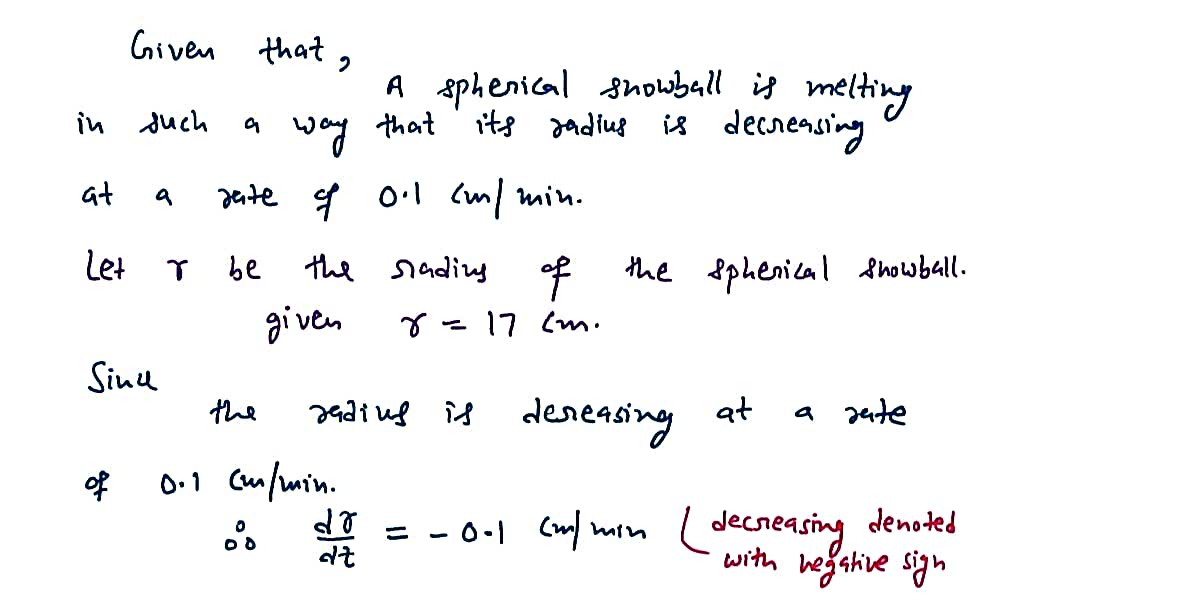 Given that,
A spherical snowball is melting
in such a way that its radius is decreasing
at a rate of 0.1 cm/min.
Let r be the radius of the spherical snowball.
given r = 17 cm.
Since
the radius is decreasing at a rate
of 0.1 cm/min.
∴ dr/dt = - 0.1 cm/min (decreasing denoted
with negative sign